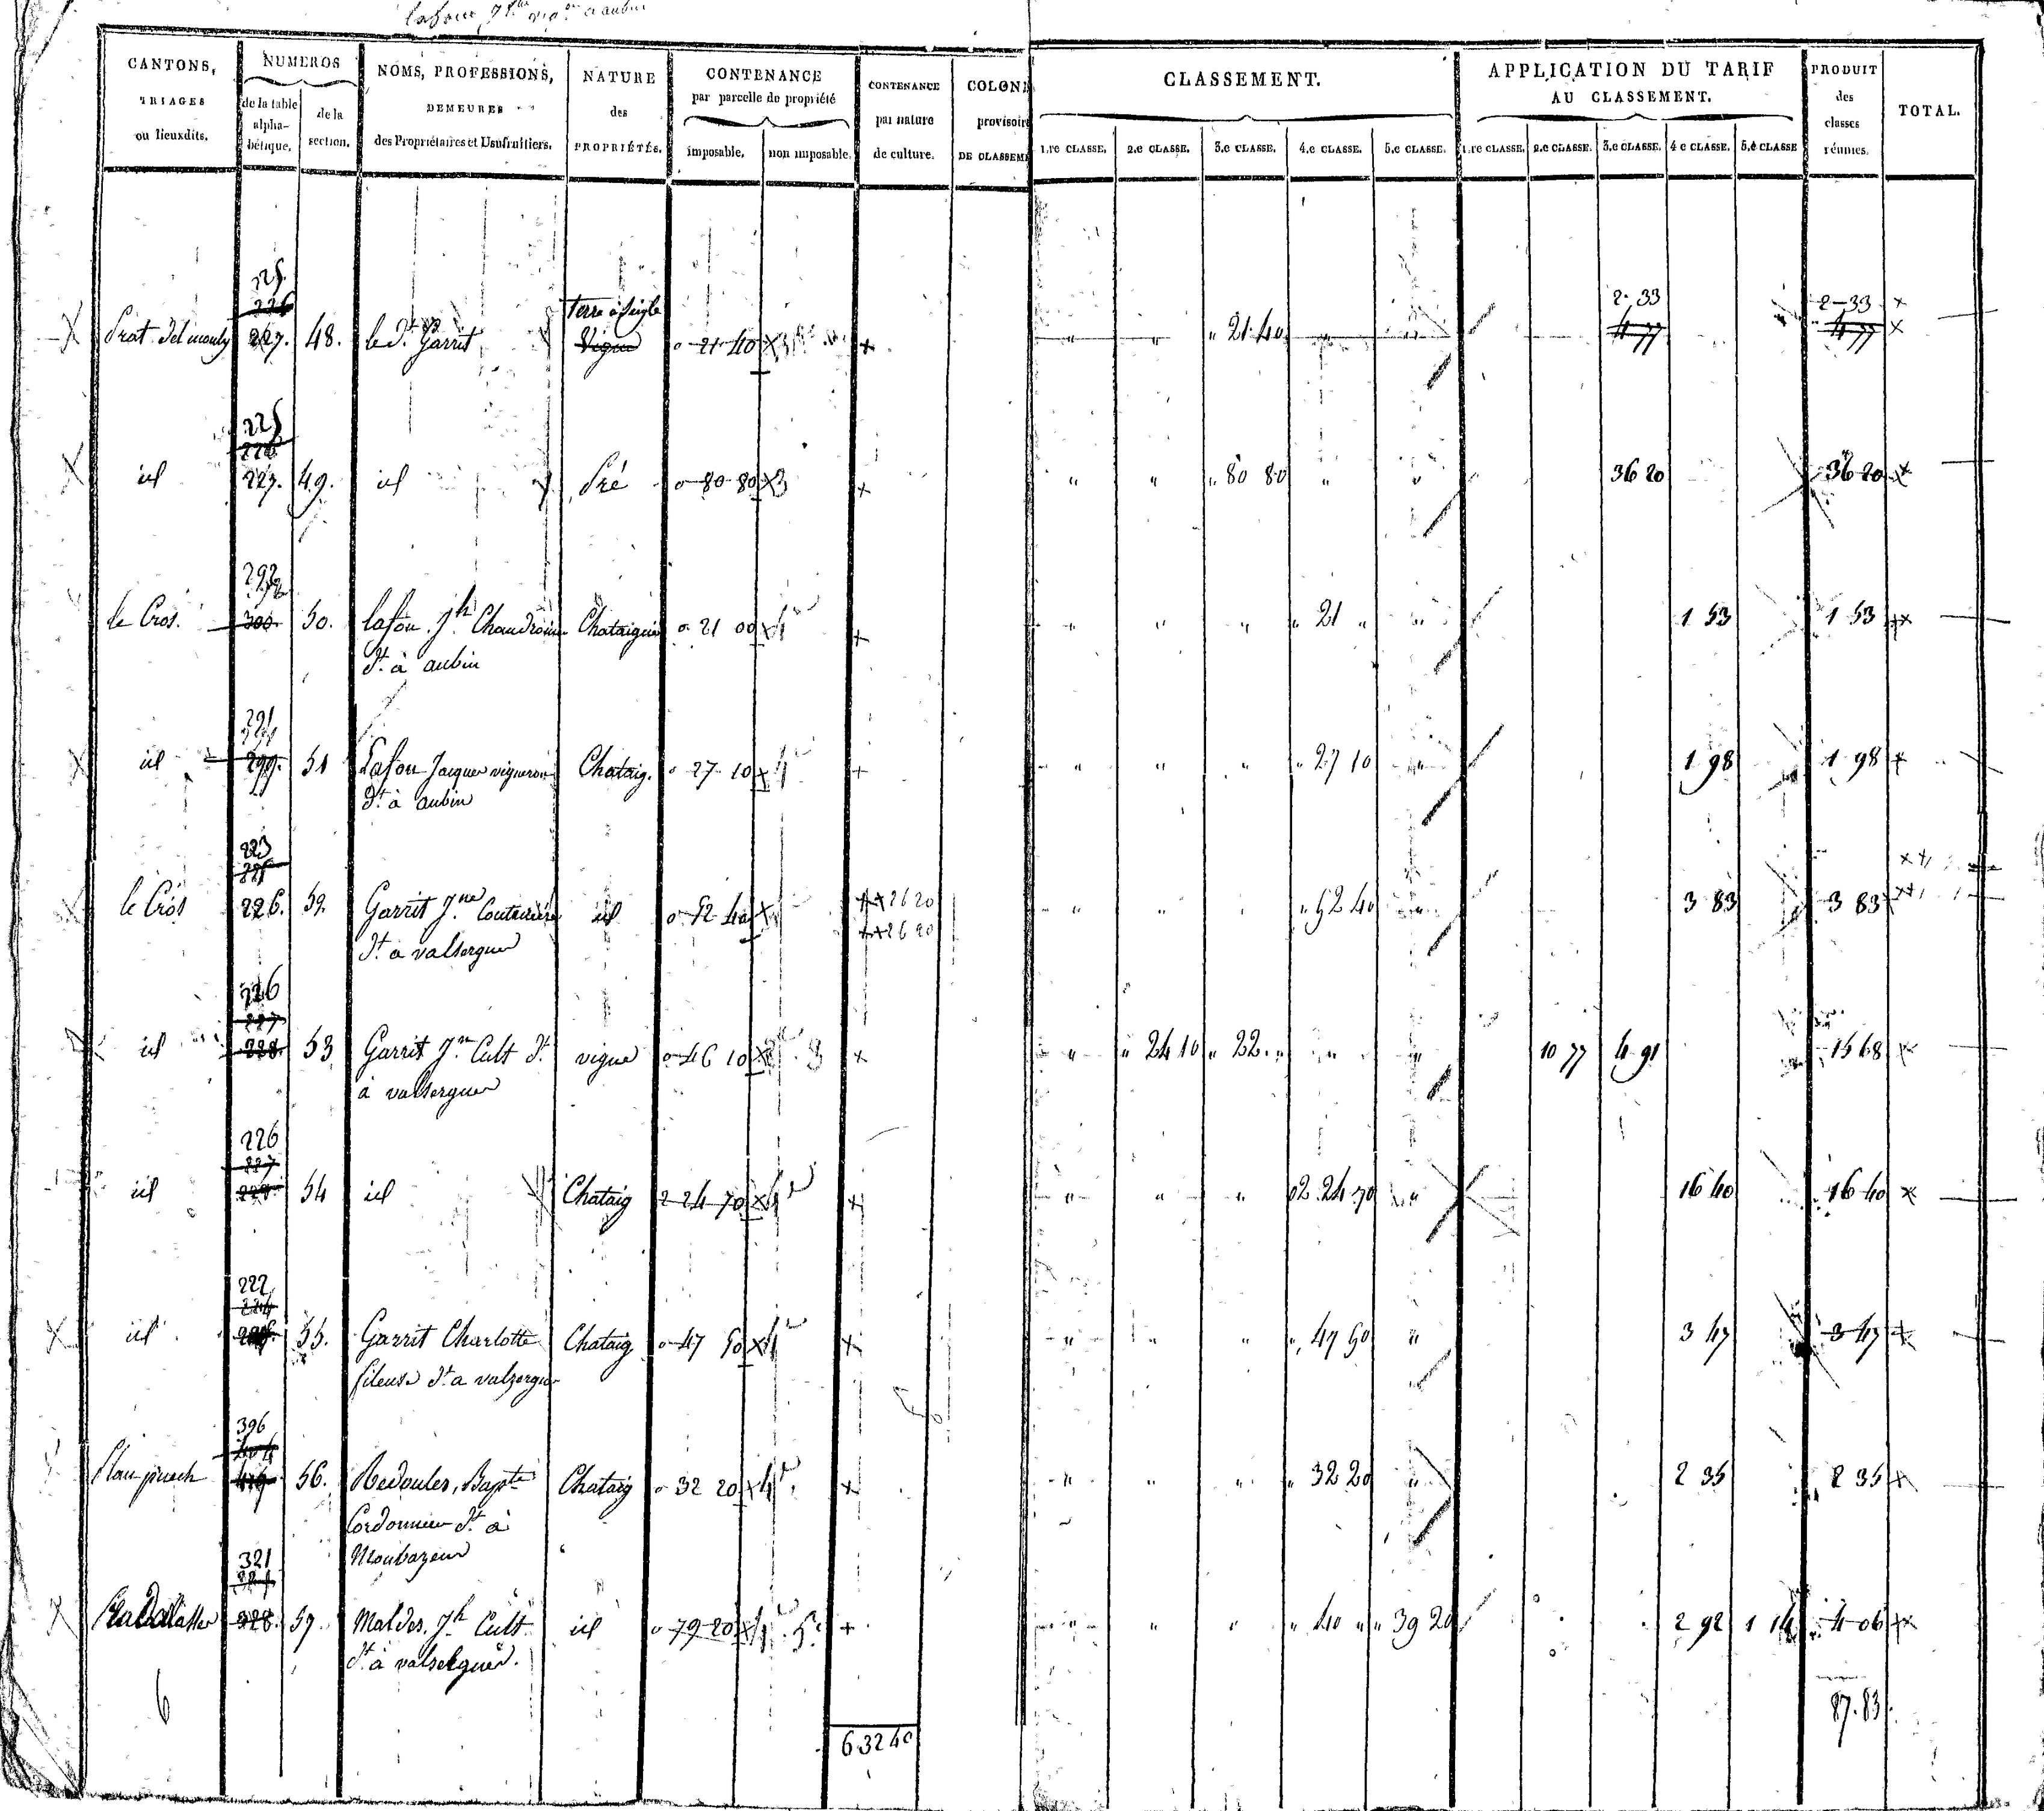 CANTONS,
TRIAGES
ou lieuxdits.
NUMEROS
de la table
alpha-
bétique.
de la
section.
NOMS, PROFESSIONS,
DEMEURES
des Propriétaires et Usufruitiers.
NATURE
des
PROPRIÉTÉS.
CONTENANCE
par parcelle de propriété
imposable.
non imposable.
CONTENANCE
par nature
de culture.
COLONN
provisoire
DE CLASSEM
CLASSEMENT.
1.re CLASSE.
2.e CLASSE.
3.e CLASSE.
4.e CLASSE.
5.e CLASSE.
APPLICATION DU TARIF
AU CLASSEMENT.
1.re CLASSE.
2.e CLASSE.
3.e CLASSE.
4.e CLASSE.
5.e CLASSE
PRODUIT
des
classes
réunies.
TOTAL.
225
226 Terre à seigle 2-33 2-33
Prat del mouly 227. 48. le d.t Garrit Vigne 0-21-40 " " " 21 40 " " 4 77 4 77
225
226
id 227. 49. id Pré 0-80-80 3 " " " 80 80 " " 36 20 36 20
292
le Cros. 300 50. Lafon J.h Chataignier 0 21 00 " " " " 21 " 1 53 1 53
d.t à aubin
291
id 299. 51 Lafon Jacques vigneron Chataig. 0 27 10 " " " " 27 10 1 98 1 98
d.t à aubin
223
225
le Cros 226. 52. Garrit J.ne Couturière id 0-52 40 26 20 " " " " 52 40 3 83 3 83
d.t a valsergues 26 20
226
227
id 228. 53 Garrit J.n Cult d.t vigne 0-46 10 3 " " 24 10 " 22 " " " 10 77 4 91 15 68
à valsergues
226
227
id 54 id Chataig 2-24-70 " " " 02 24 70 " 16 40 16 40
222
224
id 55. Garrit Charlotte Chataig 0-47 50 " " " " 47 50 " 3 47 3 47
fileuse d.t a valzergues
396
404
Plan puech 56. Redoules, Bap.te Chataig 0 32 20 " " " " 32 20 " 2 35 2 35
Cordonnier d.t à
321 Monbazens
328. 57. Maldes J.h Cult id 0 79-20 " " " " 40 " " 39 20 2 92 1 14 4 06
d.t à valsergues.
6 87.83
6 32 40